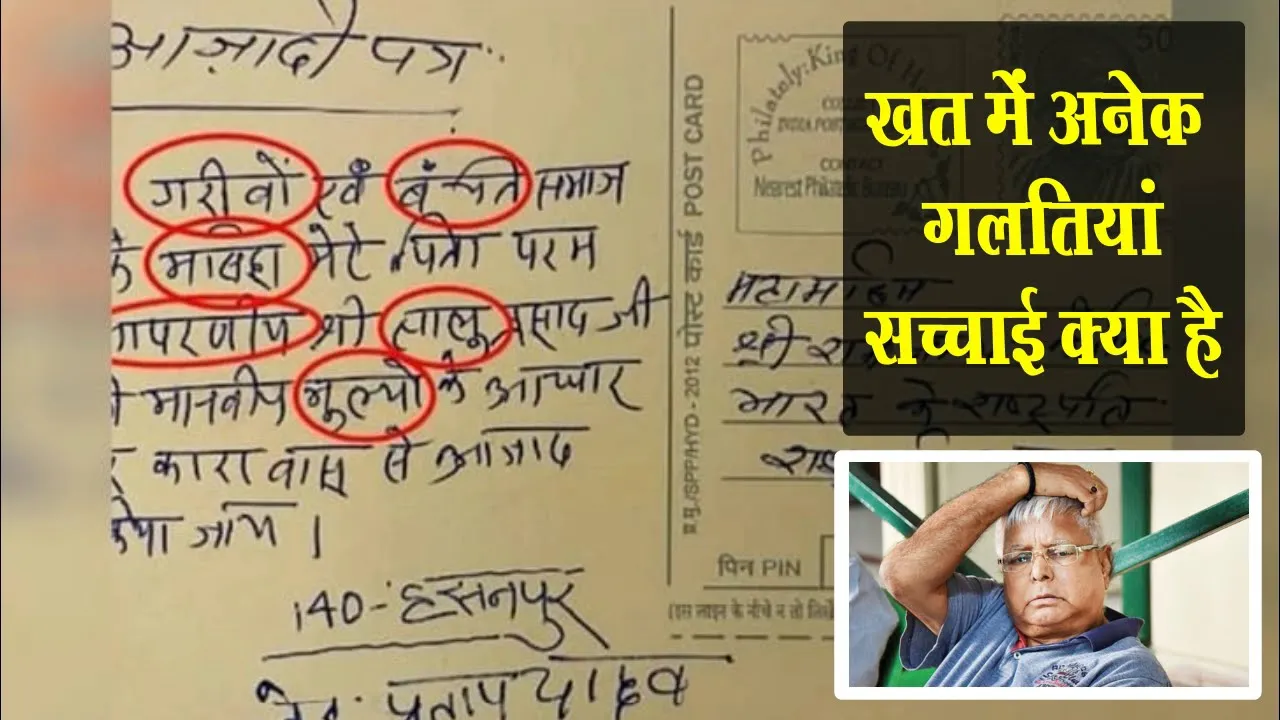 आज़ादी पत्र
गरीवों एवं बंचित समाज
के मासिहा मेरे पिता परम
श्री लालू प्रसाद जी
मानवीय मुल्यो के आधार
कारावास से आजाद
जाय ।
140-हसनपुर
तेज प्रताप यादव
पोस्ट कार्ड POST CARD
प्र.मु./SPP/HYD - 2012
Philately: King Of H
INDIA POST
CONTACT
Nearest Philatelic Bureau
50
महामहिम
श्री
भारत के राष्ट्रपति
पिन PIN
(इस लाइन के नीचे न तो लिखें
खत में अनेक
गलतियां
सच्चाई क्या है